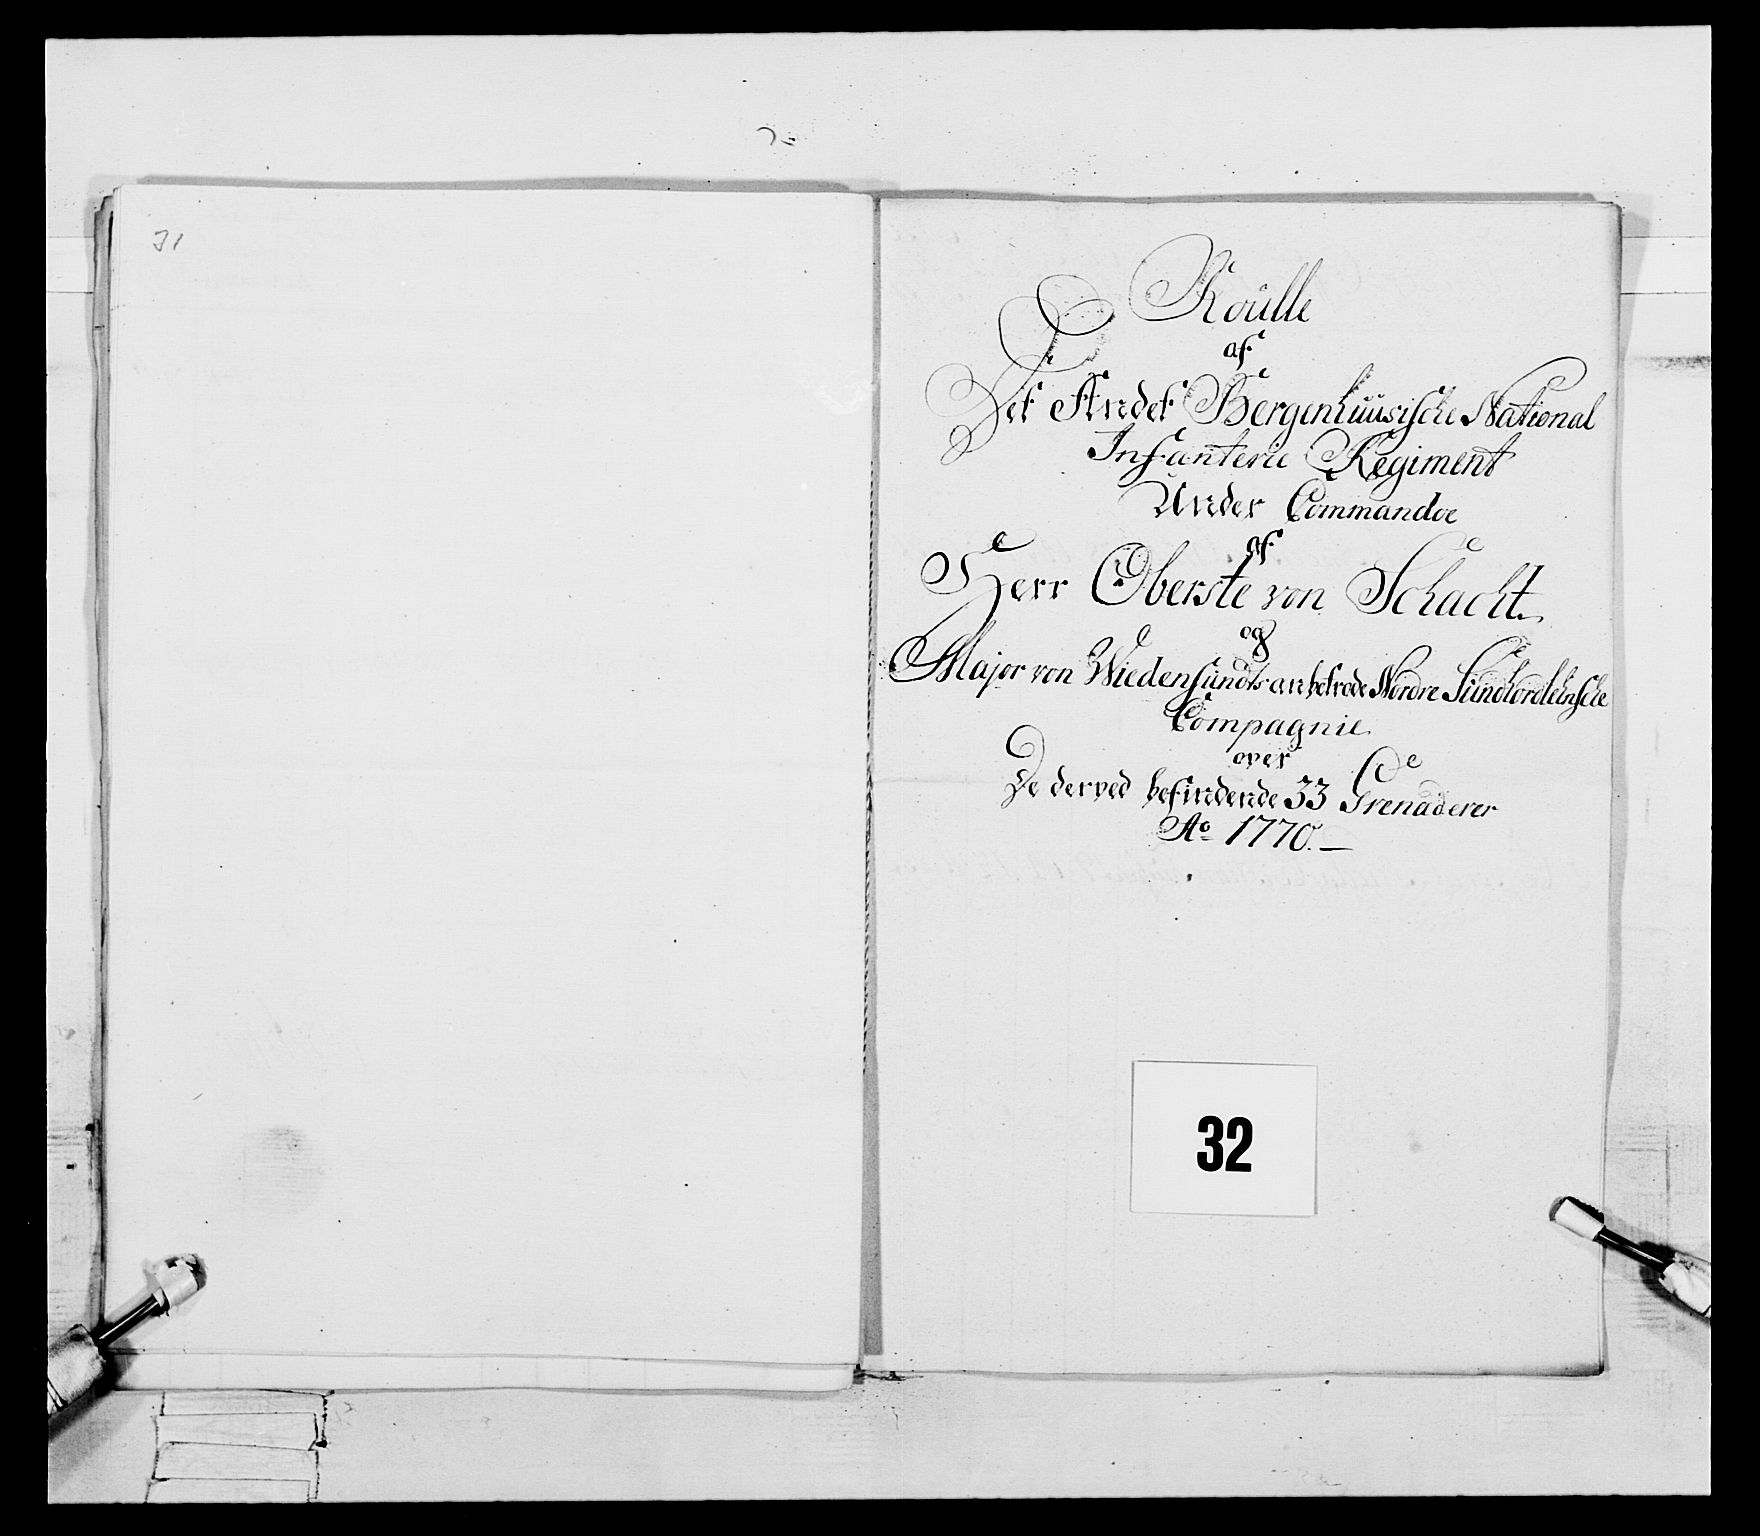 31
Roulle
af
Det Andet Bergenhuusische National
Infanterie Regiment
Under Commandoe
af
Herr Oberste von Schacht
og
Major von Wiedensundts anbetrode Nordre Sundhordelehnsche
Compagnie
over
De derved befindende 33 Grenaderer
Ao 1770. —
32